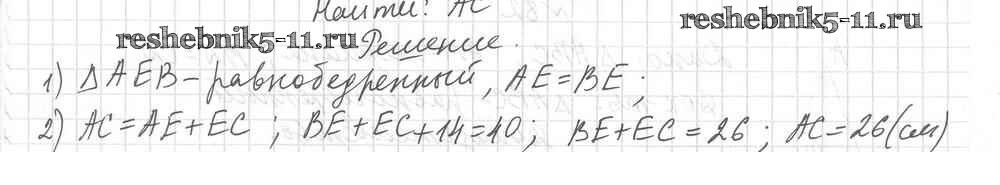 Найти: AC
reshebnik5-11.ru
reshebnik5-11.ru
Решение.
1) △AEB – равнобедренный, AE = BE;
2) AC = AE + EC; BE + EC + 14 = 40; BE + EC = 26; AC = 26 (см)